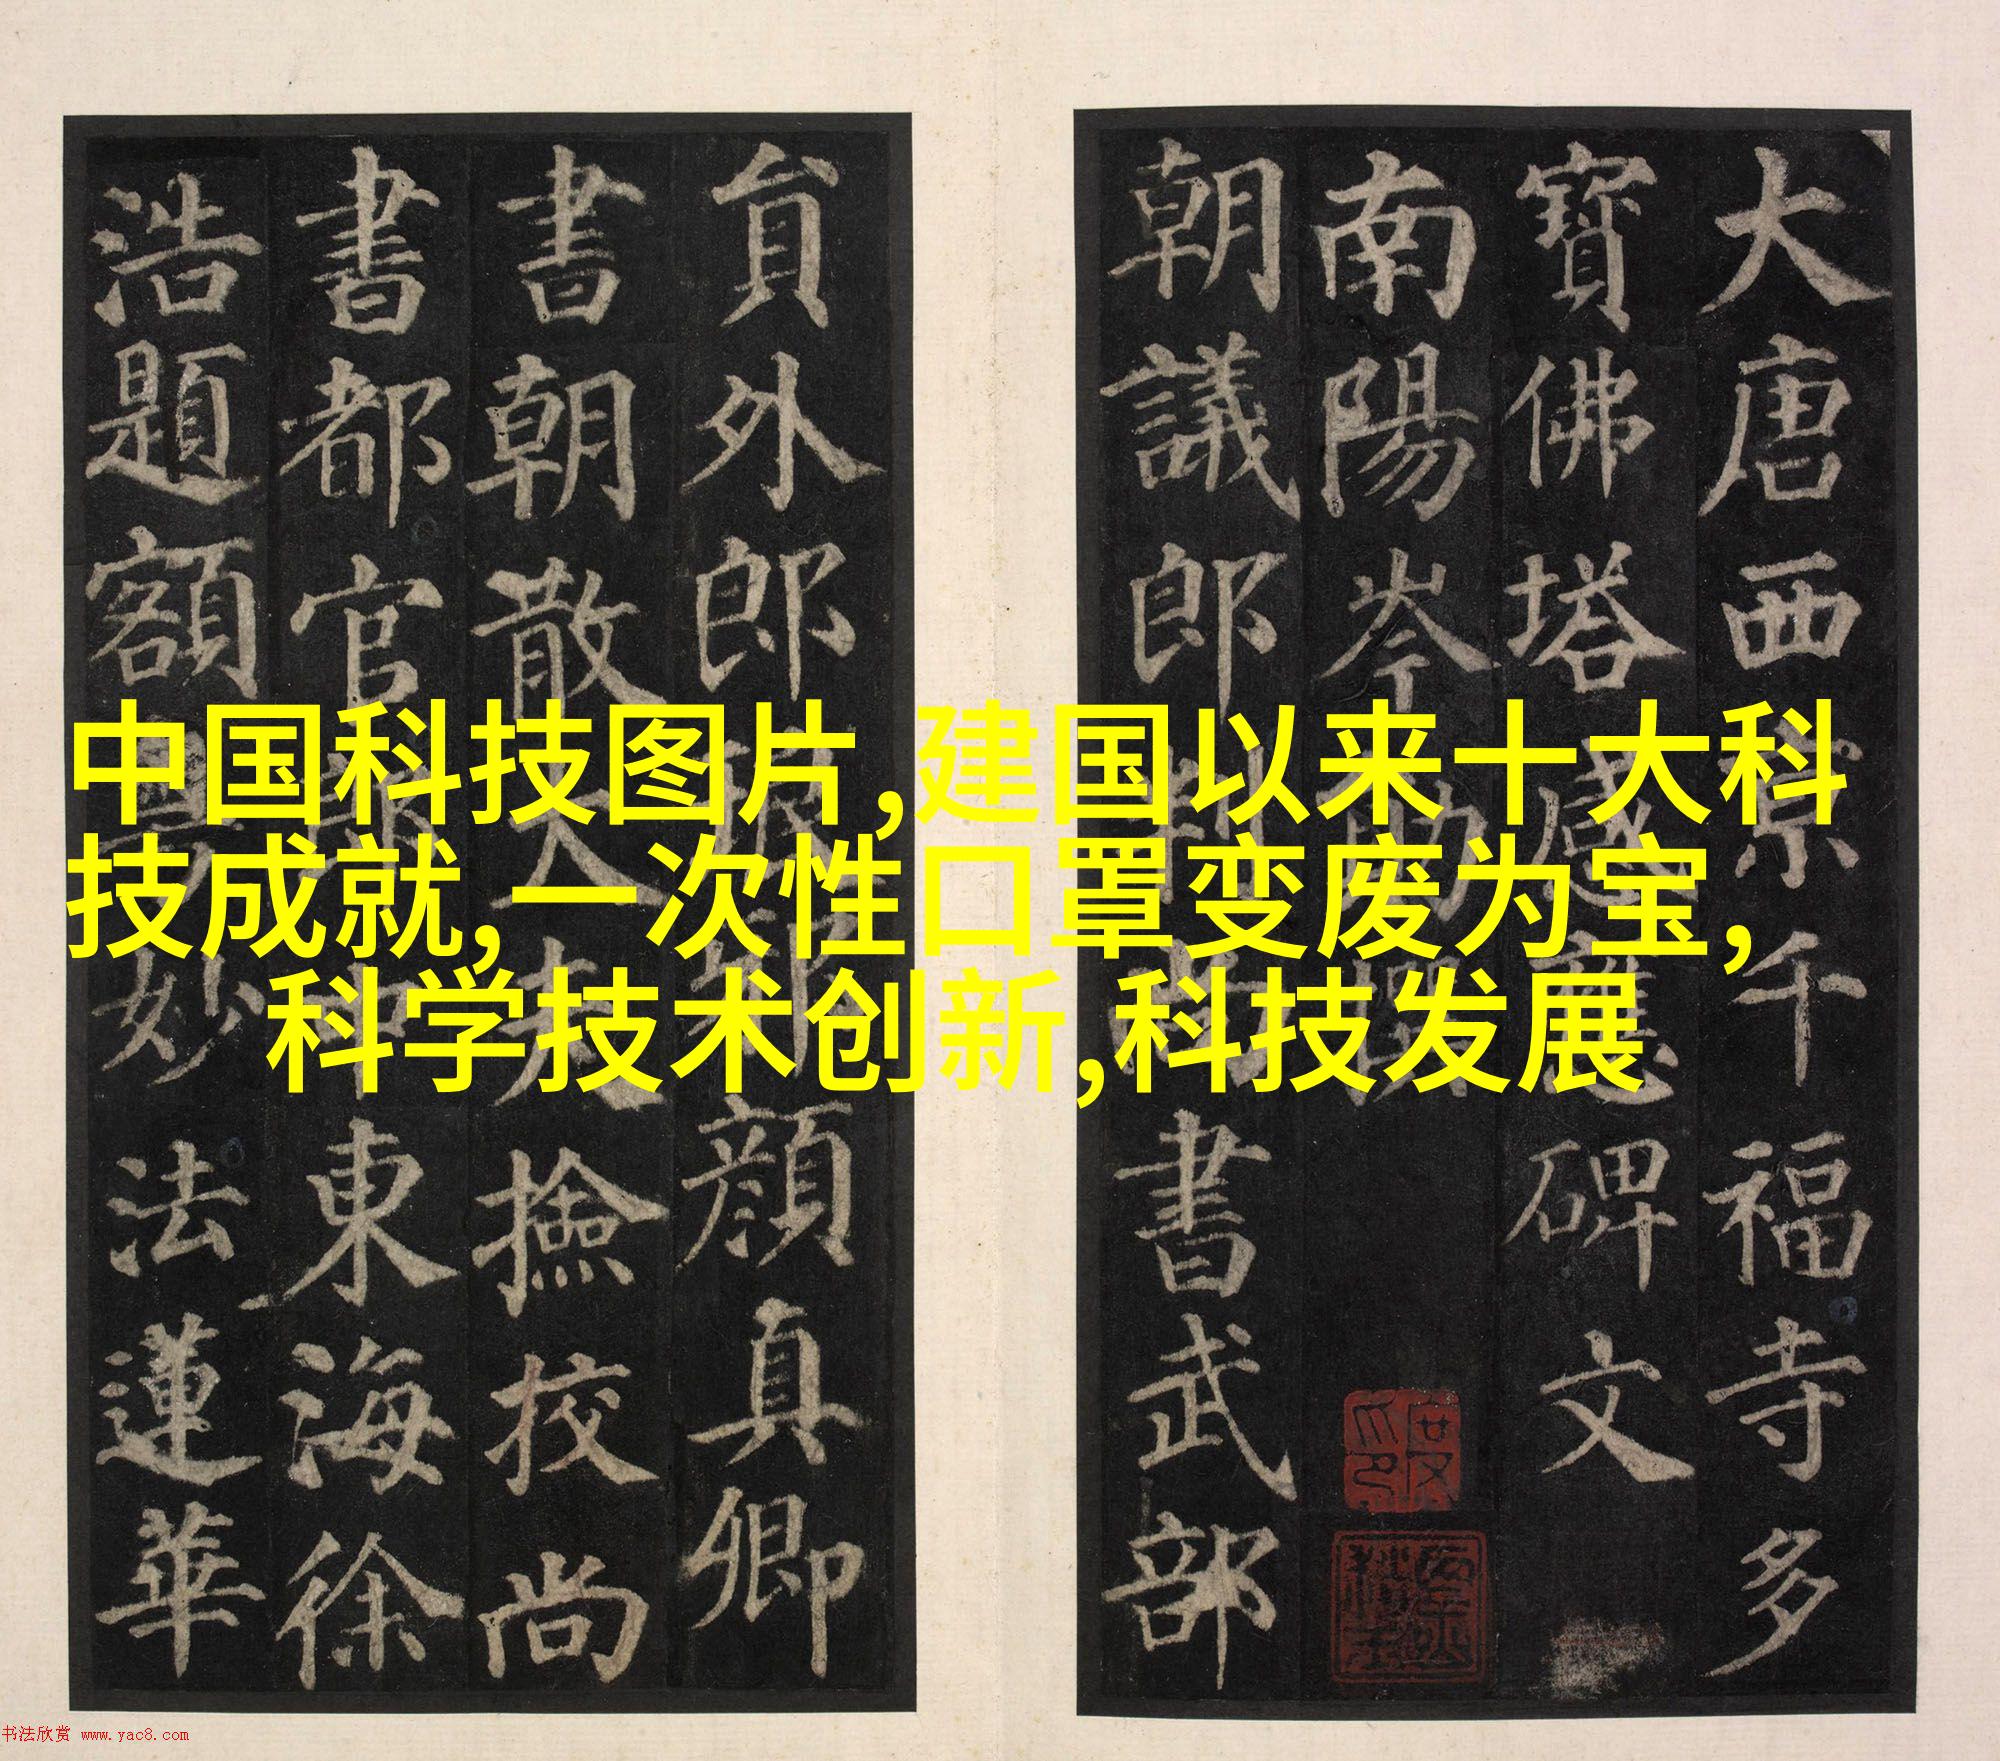 大唐西京千福寺多
寶佛塔感應碑文
南陽岑勛撰
朝議郎判尚書武部
貟外郎琅邪顏真卿
書朝散大夫撿校尚
書都官郎中東海徐
浩題額粵妙法蓮華
中国科技图片,建国以来十大科
技成就,一次性口罩变废为宝,
科学技术创新,科技发展
书法欣赏 www.yac8.com